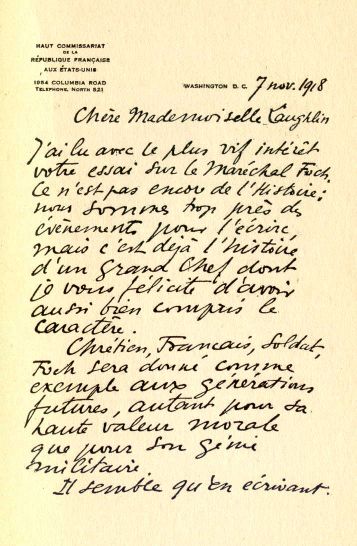 HAUT COMMISSARIAT
DE LA
RÉPUBLIQUE FRANÇAISE
AUX ÉTATS-UNIS
1954 COLUMBIA ROAD
TELEPHONE, NORTH 821
WASHINGTON D. C. 7 nov. 1918
Chère Mademoiselle Laughlin
J'ai lu avec le plus vif intérêt
votre essai sur le Maréchal Foch.
Ce n'est pas encore de l'Histoire;
nous sommes trop près des
évènements pour l'écrire,
mais c'est déjà l'histoire
d'un grand Chef dont
je vous félicite d'avoir
aussi bien compris le
caractère.
Chrétien, Francais, Soldat,
Foch sera donné comme
exemple aux générations
futures, autant pour sa
haute valeur morale
que pour son génie
militaire.
Il semble qu'en écrivant.